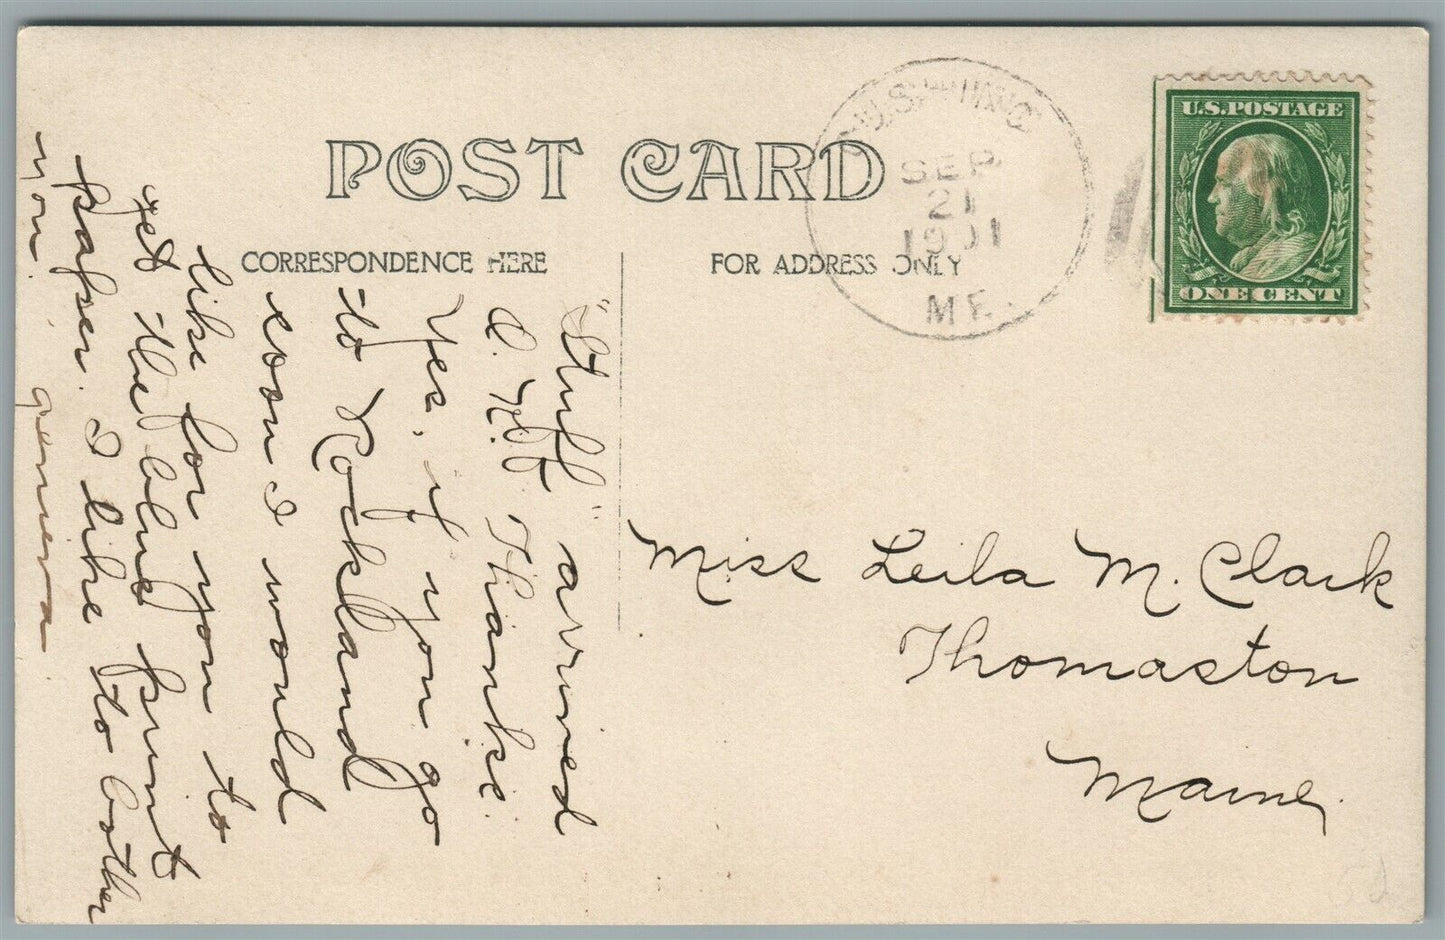 POST CARD
CORRESPONDENCE HERE
FOR ADDRESS ONLY
CUSHING
SEP
21
1911
ME.
U.S. POSTAGE
ONE CENT
"Stuff" arrived
O. K. Thanks.
Yes, if you go
to Rockland
soon I would
like for you to
get the blue print
paper. I like to bother
you. Geneva
Miss Leila M. Clark
Thomaston
Maine.